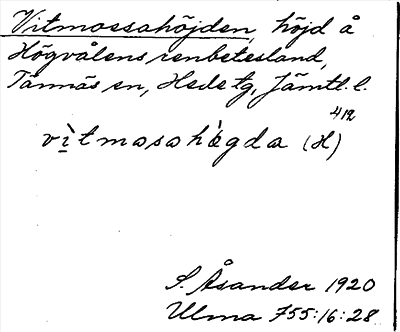 Vitmossahöjden, höjd å
Högvålens renbetesland,
Tännäs sn, Hede tg, Jämtl. l.
412
vì̱tmosahø̀gda (H)
S. Åsander 1920
Ulma 755:16:28